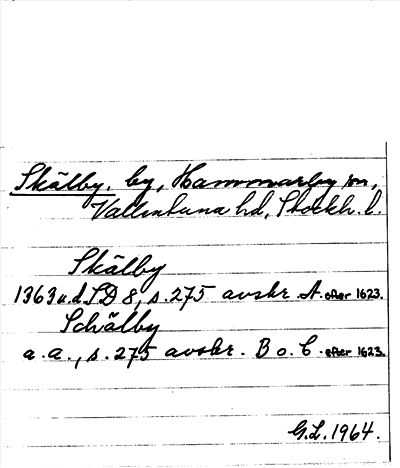 Skälby, by, Hammarby sn,
Vallentuna hd, Stockh. l.
Skälby
1363 u.d. SD 8, s. 275 avskr. A. efter 1623.
Schälby
a. a., s. 275 avskr. B o. C. efter 1623.
G.L. 1964.